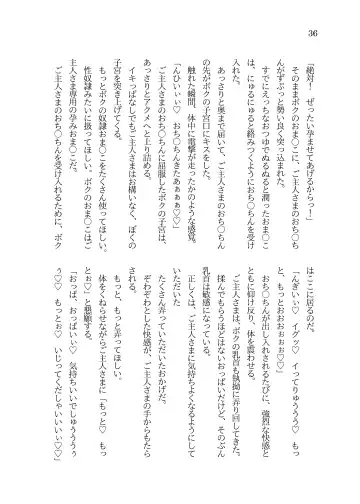 36
「絶対！　ぜったい孕ませてあげるからっ！」
そのままボクのおま〇こに、ご主人さまのおち〇ち
んがずぷっと勢い良く突っ込まれた。
すでにえっちなおつゆでぬるぬると潤ったおま〇こ
は、にゅるにゅると絡みつくようにおち〇ちんを受け
入れた。
あっさりと奥まで届いて、ご主人さまのおち〇ちん
の先がボクの子宮口にキスをした。
触れた瞬間、体中に電撃が走ったかのような感覚。
「んひいぃぃ♡　おち〇ちんきたあぁぁぁ♡♡」
あっさりとおち〇ちんに屈服したボクの子宮は、
あっさりとアクメへと上り詰める。
イキっぱなしでもご主人さまはお構いなく、ぼくの
子宮を突き上げてくる。
もっとボクの奴隷おま〇こをたくさん使ってほしい。
性奴隷みたいに扱ってほしい。ボクのおま〇こはご
主人さま専用おま〇こだ。
ご主人さまのおち〇ちんを受け入れるために、ボク
はここに居るのだ。
「んぎいぃ♡　イグッ♡　イってりゅううう♡　もっ
と、もっとおおおぉぉぉ♡♡」
おち〇ちんが出し入れされるたびに、強烈な快感と
ともに仰け反り、体を震わせる。
ご主人さまは、ボクの乳首も執拗に弄り回してきた。
揉んでもらうほどはないおっぱいだけど、そのぶん
乳首は敏感になっている。
正しくは、ご主人さまに気持ちよくなるようにして
いただいた
たくさん弄っていただいたおかげだ。
ぞわぞわとした快感が、ご主人さまの手からもたら
される。
もっと、もっと弄ってほしい。
体をくねらせながらご主人さまに「もっと♡　もっ
とぉ♡」と懇願する。
「おっぱ、おっぱいぃ♡　気持ちいいでしゅうううぅ
ぅ♡♡　もっとぉ♡　いじってくだしゃいいいぃ♡♡